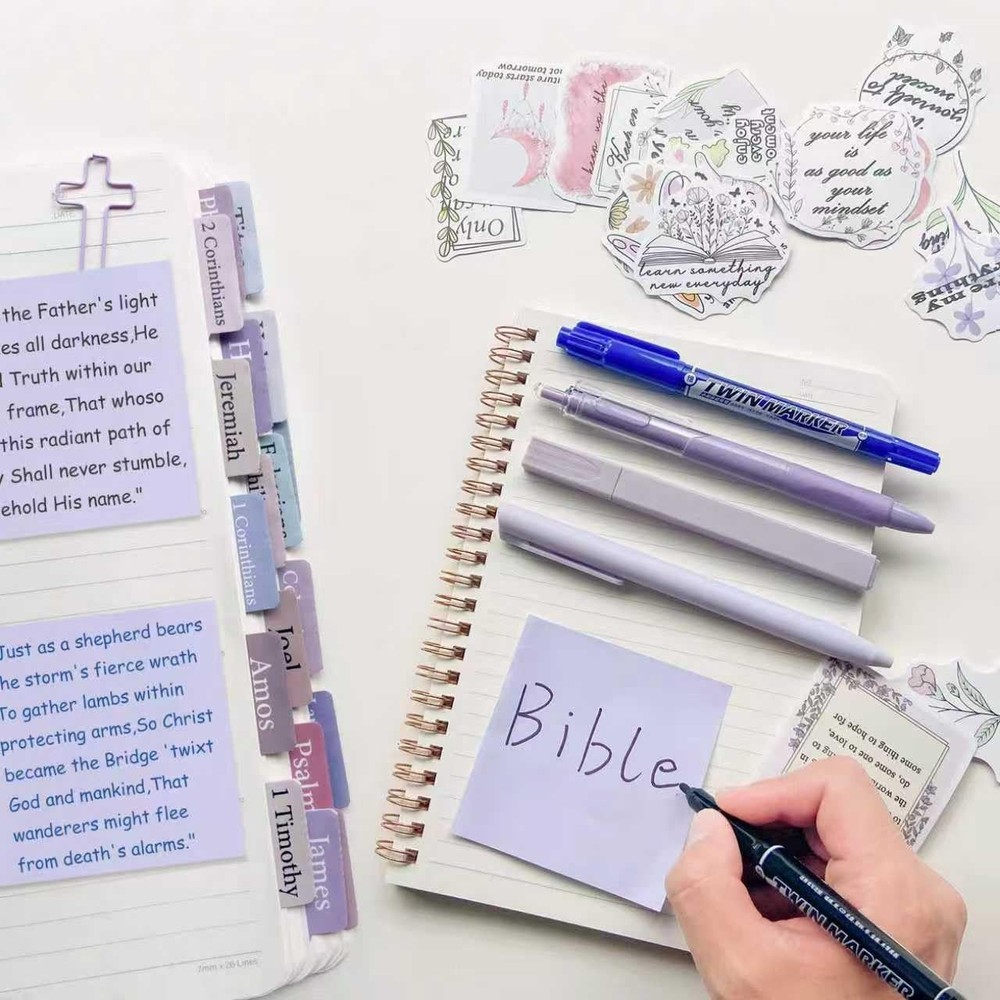 DATE:
the Father's light
es all darkness,He
Truth within our
frame,That whoso
this radiant path of
Shall never stumble,
ehold His name."
Just as a shepherd bears
he storm's fierce wrath
To gather lambs within
protecting arms,So Christ
became the Bridge 'twixt
God and mankind,That
wanderers might flee
from death's alarms."
7mm x 26 Lines
2 Corinthians
Jeremiah
1 Corinthians
Joel
Amos
Psalm
1 Timothy
James
ture starts today
not tomorrow
Only
Keep on
enjoy
every
oment
learn something
new everyday
your life
is
as good as
your
mindset
yourself to
succeed
re my
ything
TWIN MARKER
Bible
do, some one to love,
some thing to hope for
TWIN MARKER